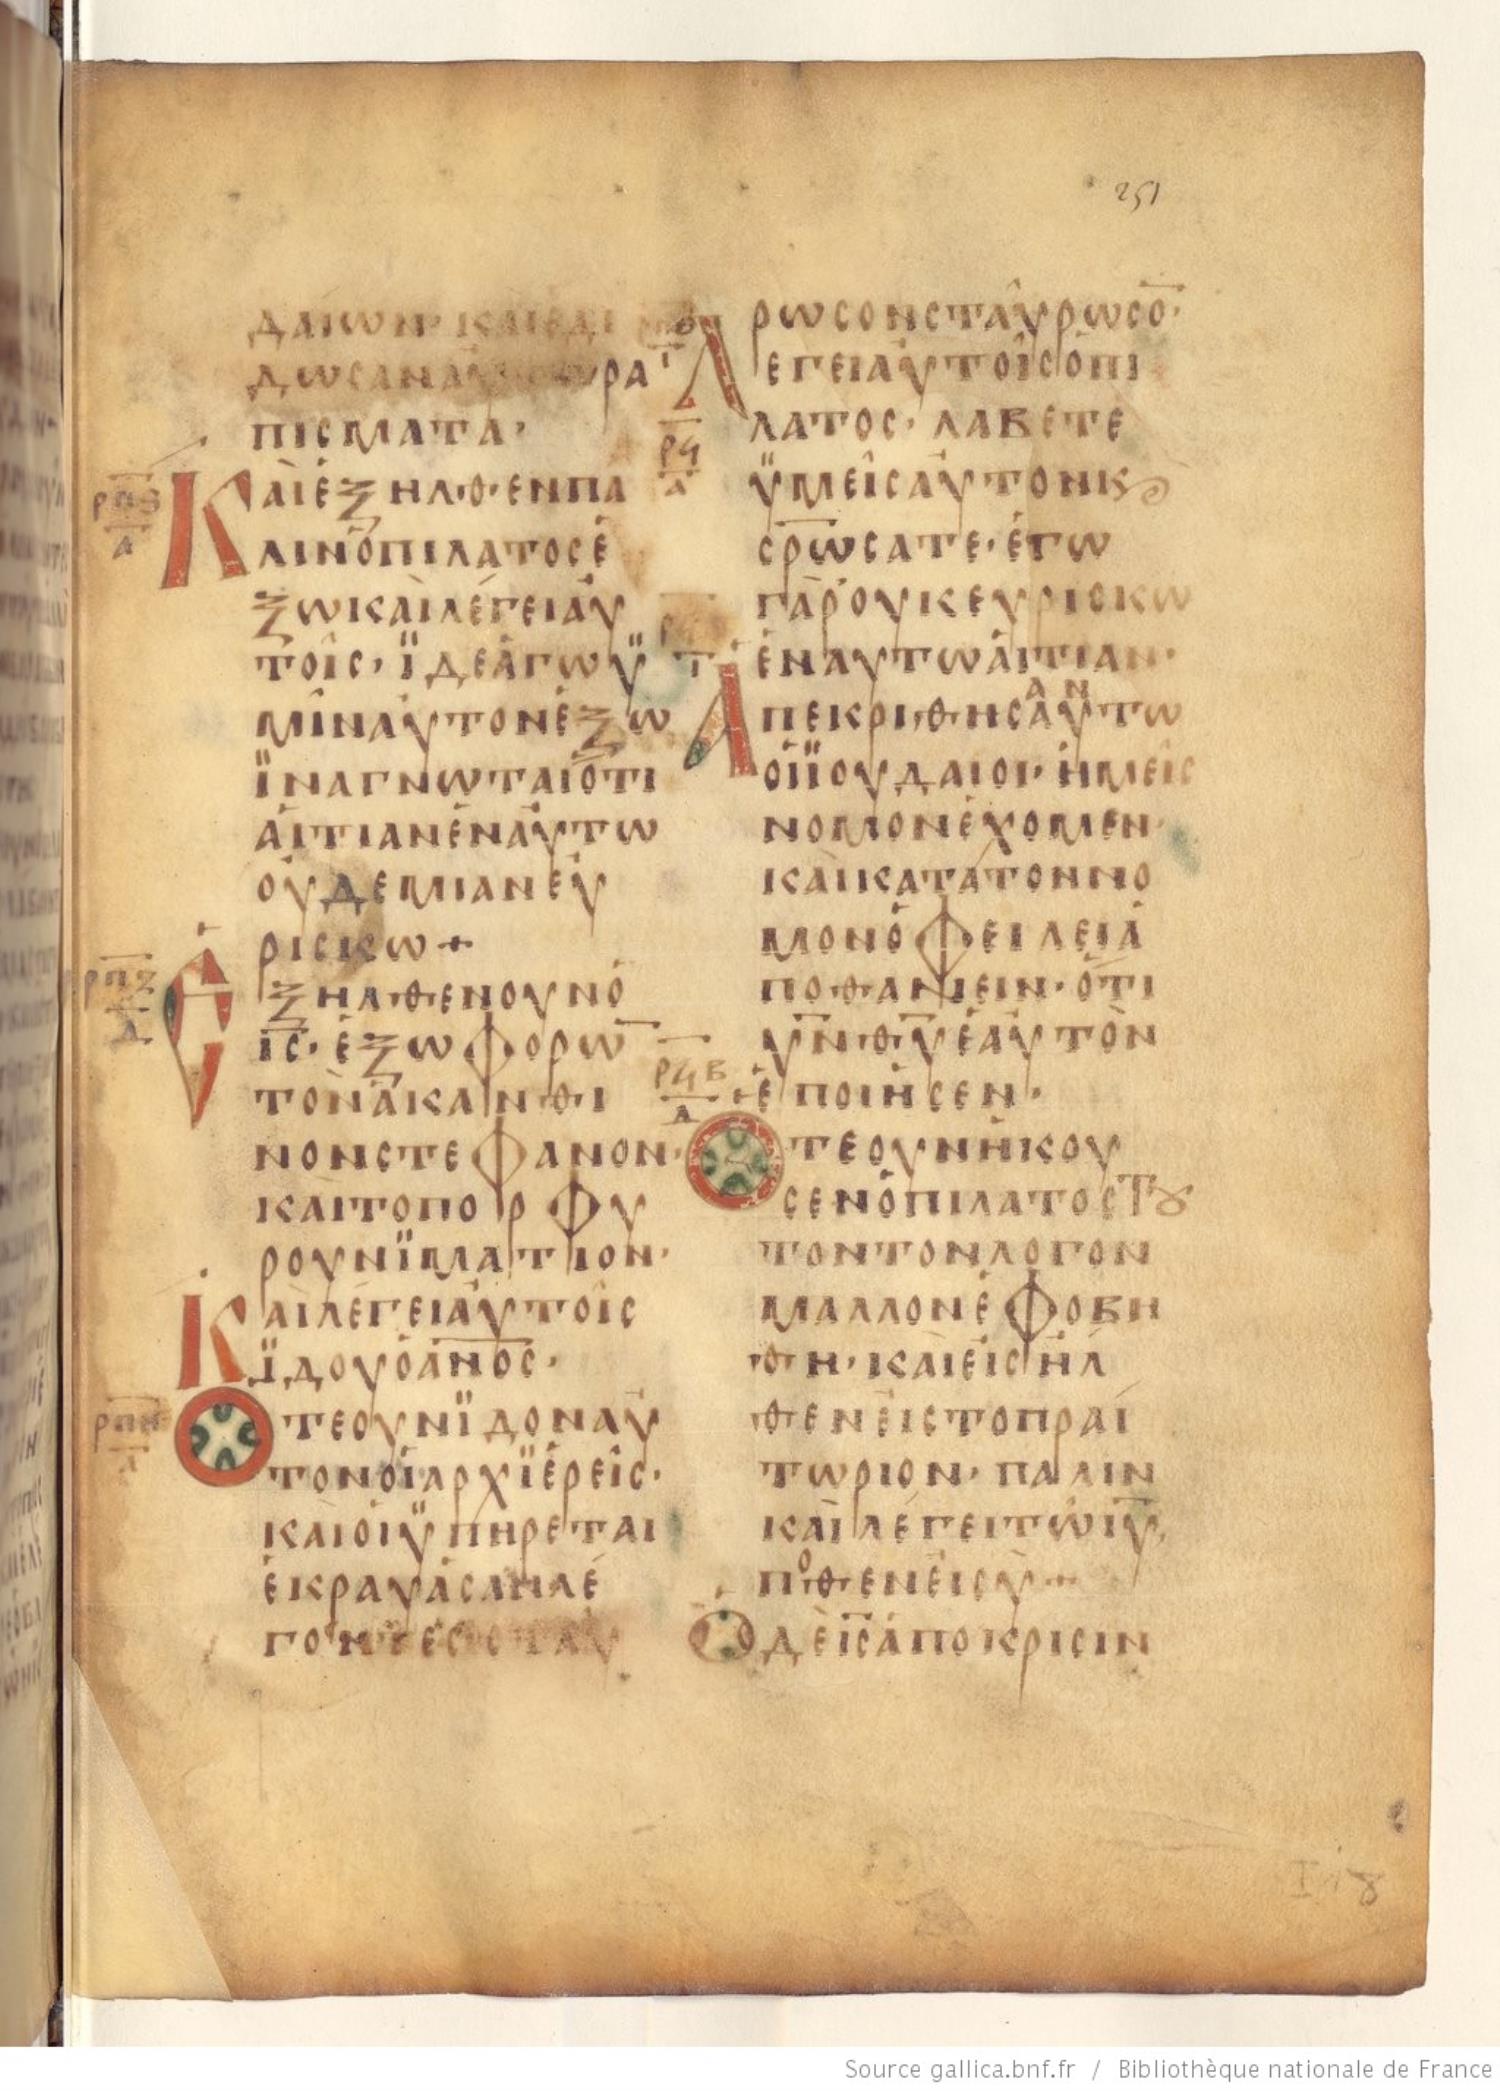 251
ΔΑΙΩΝ· ΚΑΙ ΕΔΙ
ΔΩΣΑΝ ΡΑ
ΠΙΣΜΑΤΑ·
ΚΑΙ ΕΞΗΛΘΕΝ ΠΑ
ΛΙΝ Ο ΠΙΛΑΤΟΣ Ε
ΞΩ ΚΑΙ ΛΕΓΕΙ ΑΥ
ΤΟΙΣ· ΪΔΕ ΑΓΩ Ϋ
ΜΙΝ ΑΥΤΟΝ ΕΞΩ
ΪΝΑ ΓΝΩΤΑΙ ΟΤΙ
ΑΙΤΙΑΝ ΕΝ ΑΥΤΩ
ΟΥΔΕΜΙΑΝ ΕΥ
ΡΙΣΚΩ +
ΕΞΗΛΘΕΝ ΟΥΝ Ο
ΙΣ· ΕΞΩ ΦΟΡΩ
ΤΟΝ ΑΚΑΝΘΙ
ΝΟΝ ΣΤΕΦΑΝΟΝ·
ΚΑΙ ΤΟ ΠΟΡΦΥ
ΡΟΥΝ ΪΜΑΤΙΟΝ·
ΚΑΙ ΛΕΓΕΙ ΑΥΤΟΙΣ
ΪΔΟΥ Ο ΑΝΟΣ·
ΟΤΕ ΟΥΝ ΪΔΟΝ ΑΥ
ΤΟΝ ΟΙ ΑΡΧΪΕΡΕΙΣ·
ΚΑΙ ΟΙ ΫΠΗΡΕΤΑΙ
ΕΚΡΑΥΑΣΑΝ ΛΕ
ΓΟΝΤΕΣ ΣΤΑΥ
ΡΩΣΟΝ ΣΤΑΥΡΩΣΟ·
ΛΕΓΕΙ ΑΥΤΟΙΣ Ο ΠΙ
ΛΑΤΟΣ· ΛΑΒΕΤΕ
ΫΜΕΙΣ ΑΥΤΟΝ Κϗ
ΣΡΩΣΑΤΕ· ΕΓΩ
ΓΑΡ ΟΥΚ ΕΥΡΙΣΚΩ
ΕΝ ΑΥΤΩ ΑΙΤΙΑΝ·
ΑΠΕΚΡΙΘΗΣΑΝ ΑΥΤΩ
ΟΙ ΪΟΥΔΑΙΟΙ· ΗΜΕΙΣ
ΝΟΜΟΝ ΕΧΟΜΕΝ·
ΚΑΙ ΚΑΤΑ ΤΟΝ ΝΟ
ΜΟΝ ΟΦΕΙΛΕΙ Α
ΠΟΘΑΝΕΙΝ· ΟΤΙ
ΥΝ ΘΥ ΕΑΥΤΟΝ
ΕΠΟΙΗΣΕΝ·
ΟΤΕ ΟΥΝ ΗΚΟΥ
ΣΕΝ Ο ΠΙΛΑΤΟΣ ΤȢ
ΤΟΝ ΤΟΝ ΛΟΓΟΝ
ΜΑΛΛΟΝ ΕΦΟΒΗ
ΘΗ· ΚΑΙ ΕΙΣΗΛ
ΘΕΝ ΕΙΣ ΤΟ ΠΡΑΙ
ΤΩΡΙΟΝ· ΠΑΛΙΝ
ΚΑΙ ΛΕΓΕΙ ΤΩ ΙΥ,
ΠΟΘΕΝ ΕΙ ΣΥ +
Ο ΔΕ ΙΣ ΑΠΟΚΡΙΣΙΝ
Source gallica.bnf.fr / Bibliothèque nationale de France